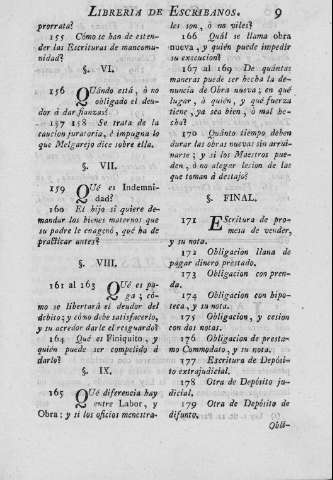 LIBRERIA DE ESCRIBANOS. 9
prorrata?
155 Cómo se han de esten-
der las Escrituras de mancomu-
nidad?
§. VI.
156 QUándo está, ò no
obligado el deu-
dor á dar fianzas?
157 158 Se trata de la
caucion juratoria, é impugna lo
que Melgarejo dice sobre ella.
§. VII.
159 QUé es Indemni-
dad?
160 El hijo si quiere de-
mandar los bienes maternos que
su padre le enagenó, qué ha de
practicar antes?
§. VIII.
161 al 163 QUé es pa-
ga; có-
mo se libertará el deudor del
debito; y cómo debe satisfacerlo,
y su acredor darle el resguardo?
164 Qué es Finiquito, y
quién puede ser compelido á
darlo?
§. IX.
165 QUé diferencia hay
entre Labor, y
Obra: y si los oficios menestra-
les son, ò no viles?
166 Quál se llama obra
nueva, y quién puede impedir
su execucion?
167 al 169 De quántas
maneras puede ser hecha la de-
nuncia de Obra nueva; en qué
lugar, á quién, y qué fuerza
tiene, ya sea bien, ó mal he-
cha?
170 Quánto tiempo deben
durar las obras nuevas sin arrui-
narse; y si los Maestros pue-
den, ò no alegar lesion de las
que toman á destajo?
§. FINAL.
171 EScritura de pro-
mesa de vender,
y su nota.
172 Obligacion llana de
pagar dinero prestado.
173 Obligacion con pren-
da.
174 Obligacion con hipo-
teca, y su nota.
175 Obligacion, y cesion
con dos notas.
176 Obligacion de presta-
mo Commodato, y su nota.
177 Escritura de Deposi-
to extrajudicial.
178 Otra de Deposito ju-
dicial.
179 Otra de Deposito de
difunto.
Obli-